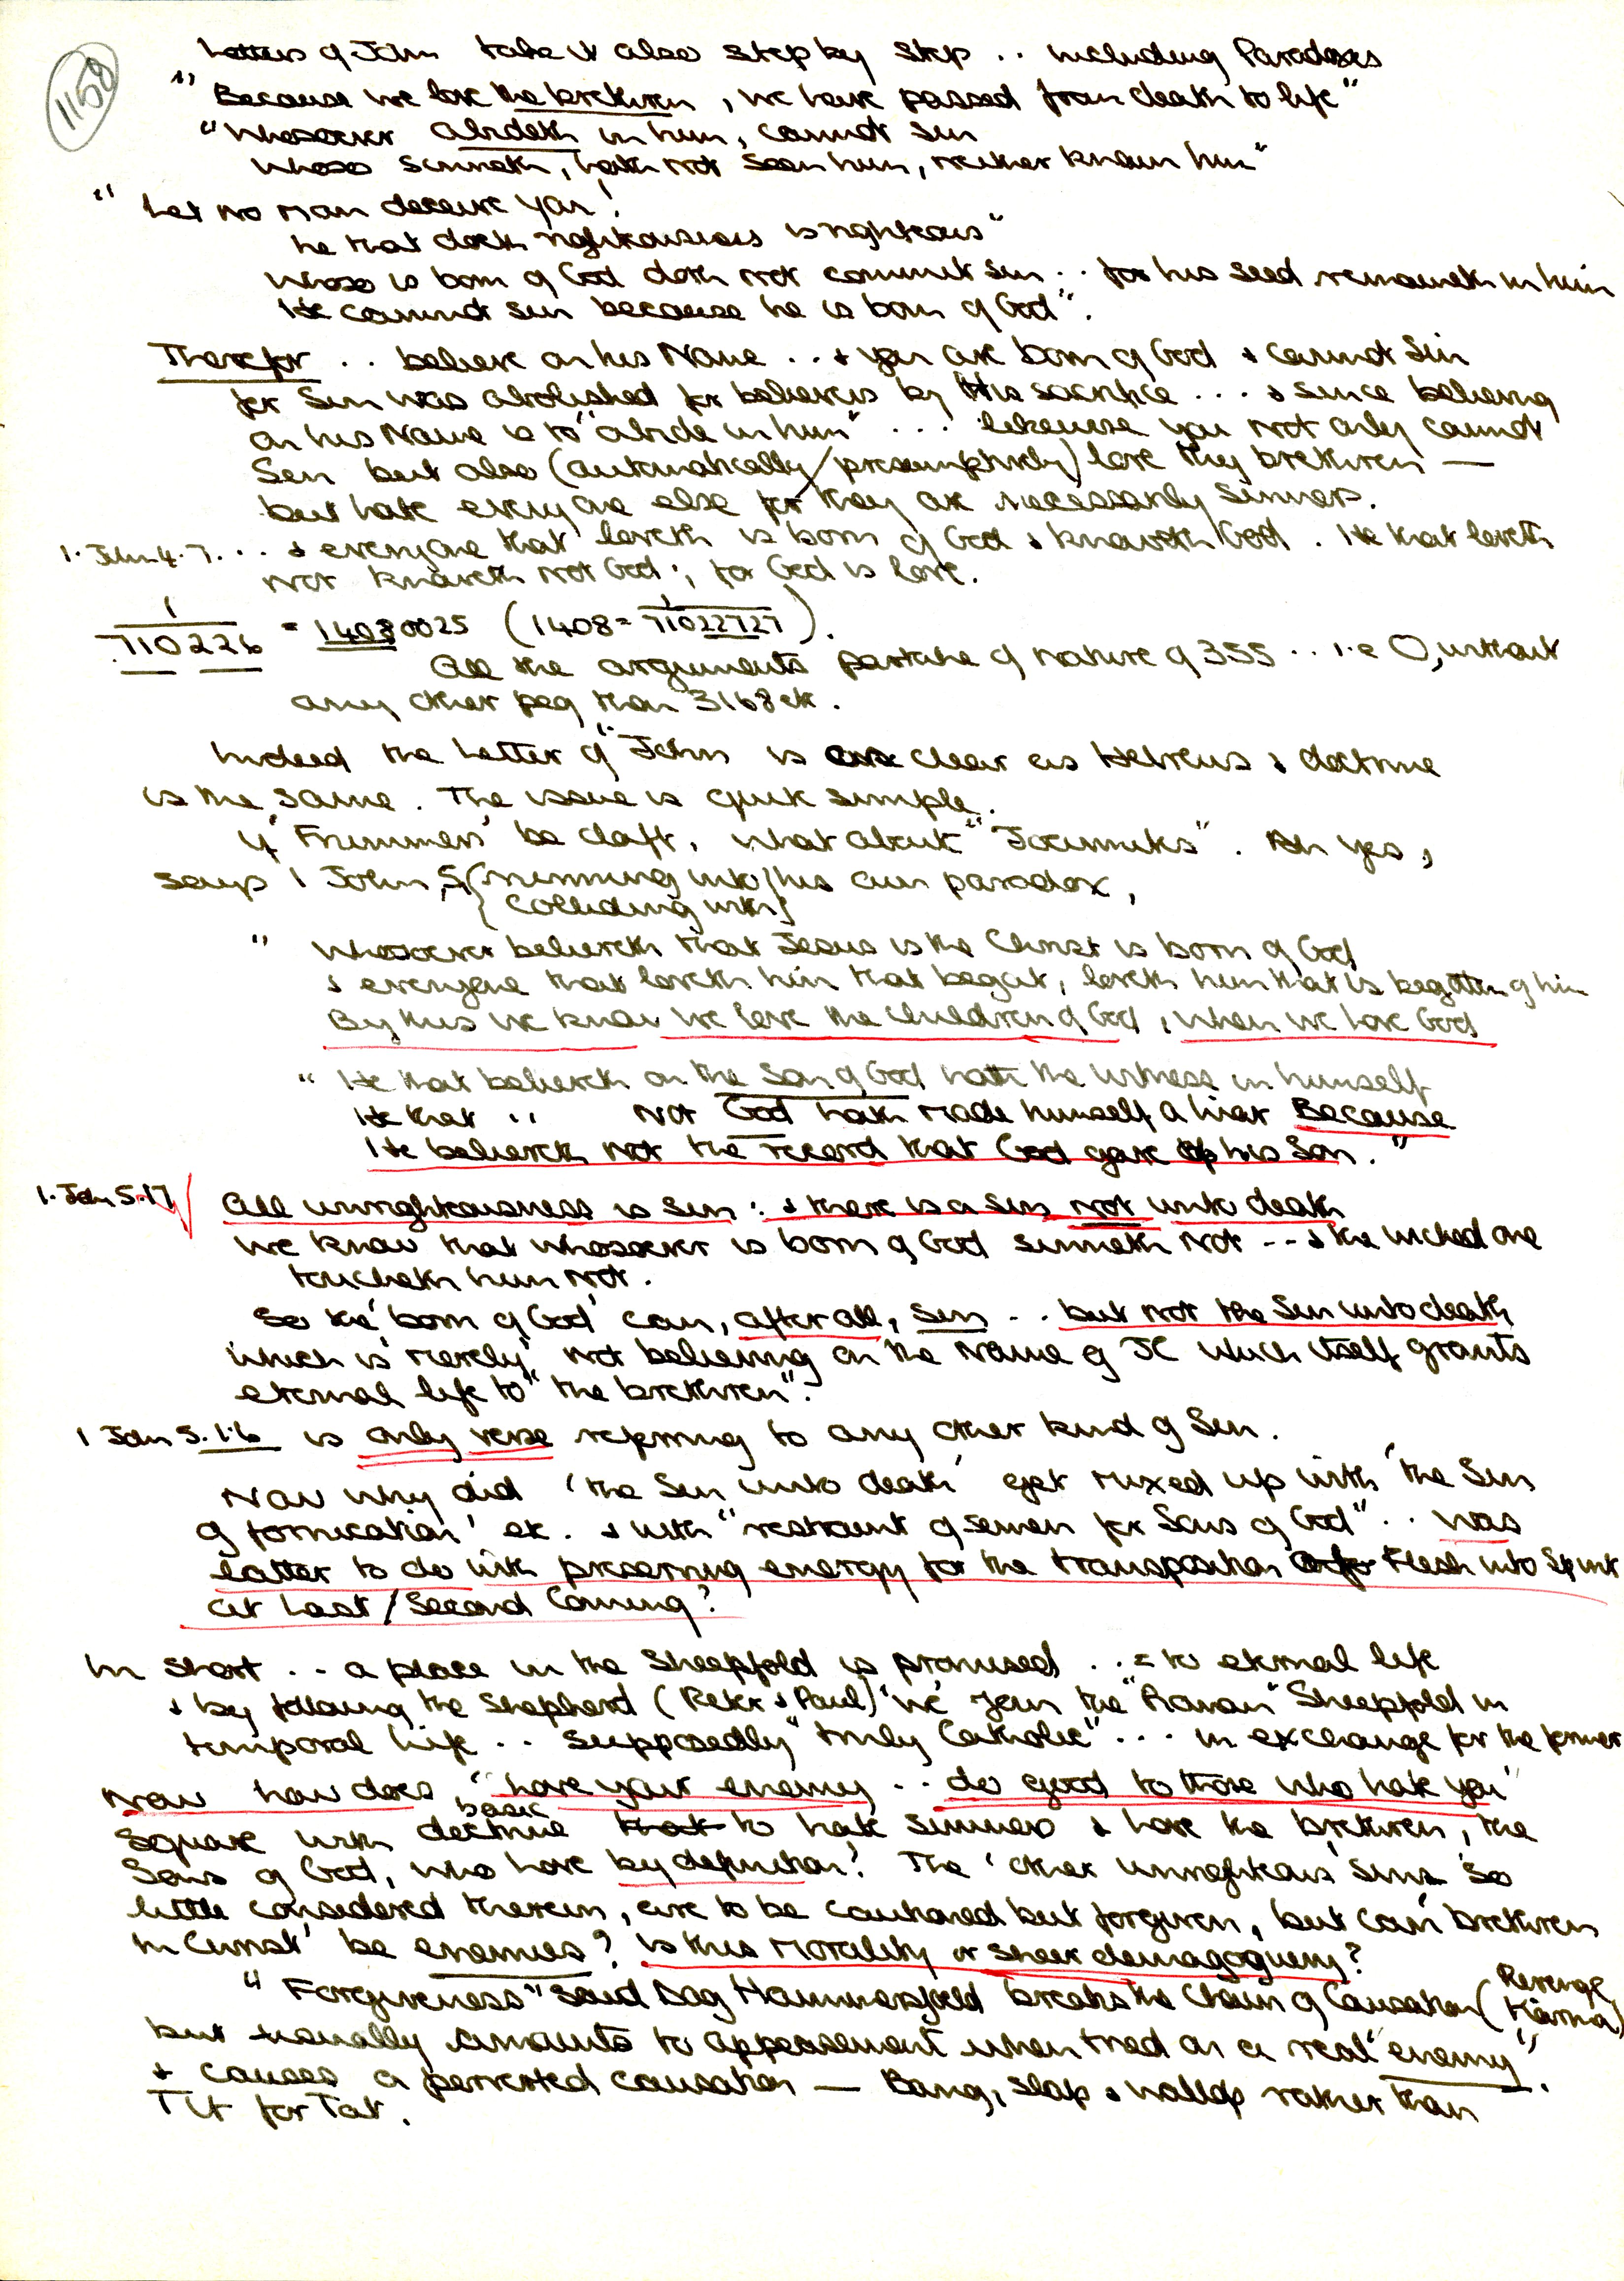 1158
Letters of John take it also step by step .. including Paradoxes
"Because we love the brethren, we have passed from death to life"
"Whosoever abideth in him, cannot sin
Whoso sinneth, hath not seen him, neither known him"
"Let no man deceive you!
he that doeth righteousness is righteous"
Whoso is born of God doth not commit sin .. for his seed remaineth in him
He cannot sin because he is born of God".
Therefor .. believe on his Name ... & you are born of God & cannot Sin
for Sin was abolished for believers by His sacrifice .... & since believing
on his Name is to "abide in him" ... likewise you not only cannot
Sin but also (automatically/presumptively) love thy brethren —
but hate everyone else for they are necessarily sinners.
1. John 4.7. .. & everyone that loveth is born of God & knoweth God. He that loveth
not knoweth not God; for God is love.
1/710226 = 14080025 (1408 = 1/71022727).
All the arguments partake of nature of 355 .. i.e O, without
any other peg than 3168 etc.
Indeed the Letter of "John is as clear as Hebrews & doctrine
is the same. The issue is quite simple.
if be daft, what about . Ah yes,
says 1 John 5 {running into / colliding with} his own paradox,
" Whosoever believeth that Jesus is the Christ is born of God
& everyone that loveth him that begat, loveth him that is begotten of him
By this we know we love the children of God, when we love God
" He that believeth on the Son of God hath the witness in himself
He that .. not God hath made himself a liar Because
He believeth not the record that God gave of his Son."
1. John 5.17 All unrighteousness is Sin: & there is a Sin not unto death
We know that whosoever is born of God sinneth not -- & the wicked one
toucheth him not.
So the 'born of God' can, after all, sin .. but not the Sin unto death
which is 'merely' not believing on the Name of JC which itself grants
eternal life to "the brethren".
1 John 5.16 is only verse referring to any other kind of Sin.
Now why did 'the Sin unto death' get mixed up with 'the Sin
of fornication' etc. & with "restraint of semen for Sons of God" .. Was
latter to do with preserving energy for the transposition of Flesh into Spirit
at Last/Second Coming?
In short .. a place in the Sheepfold is promised .. = to eternal life
& by following the Shepherd (Peter & Paul) 'we' join the "Roman" Sheepfold in
temporal life .. supposedly "truly Catholic" ... in exchange for the former
Now how does "love your enemy .. do good to those who hate you"
square with basic doctrine that to hate sinners & love the brethren, the
Sons of God, who love by definition? The 'other unrighteous' sins so
little considered therein, are to be cautioned but forgiven, but can 'brethren
in Christ' be enemies? Is this morality or sheer demagoguery?
"Forgiveness" said Dag Hammarsjoeld breaks the Chain of Causation (Revenge Karma)
but usually amounts to appeasement when tried on a real "enemy"
& causes a perverted causation — Bang, slap & wallop rather than
Tit for Tat.